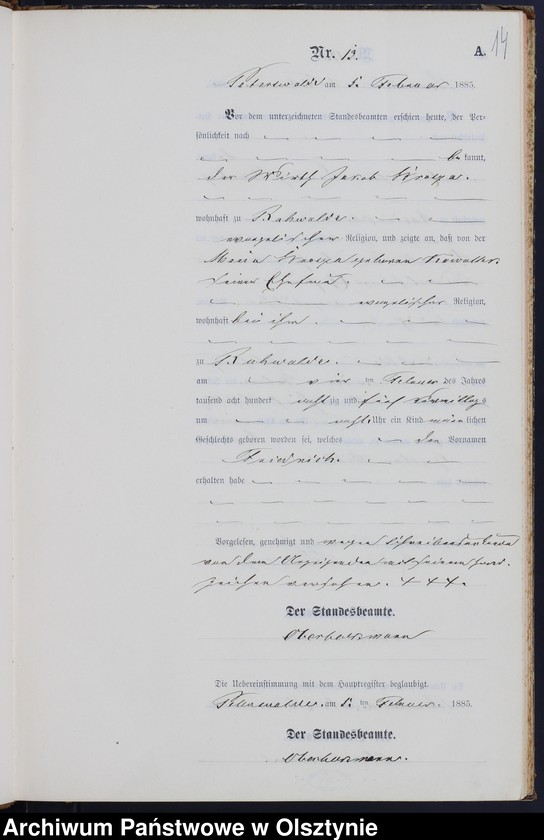 14
Nr. 13. A.
am 5. Februar 1885.
Vor dem unterzeichneten Standesbeamten erschien heute, der Per-
sönlichkeit nach
bekannt,
der Wirth Jacob
wohnhaft zu
evangelischer Religion, und zeigte an, daß von der
geboren
seiner Ehefrau
evangelischer Religion,
wohnhaft bei ihm
zu
am vier ten Februar des Jahres
tausend acht hundert achtzig und fünf Vormittags
um acht Uhr ein Kind männlichen
Geschlechts geboren worden sei, welches den Vornamen
Friedrich
erhalten habe
Vorgelesen, genehmigt und wegen
von dem Anzeigenden mit seinem Hand-
zeichen versehen. + + +.
Der Standesbeamte.
Die Uebereinstimmung mit dem Hauptregister beglaubigt.
am 5. ten Februar 1885.
Der Standesbeamte.
Archiwum Państwowe w Olsztynie